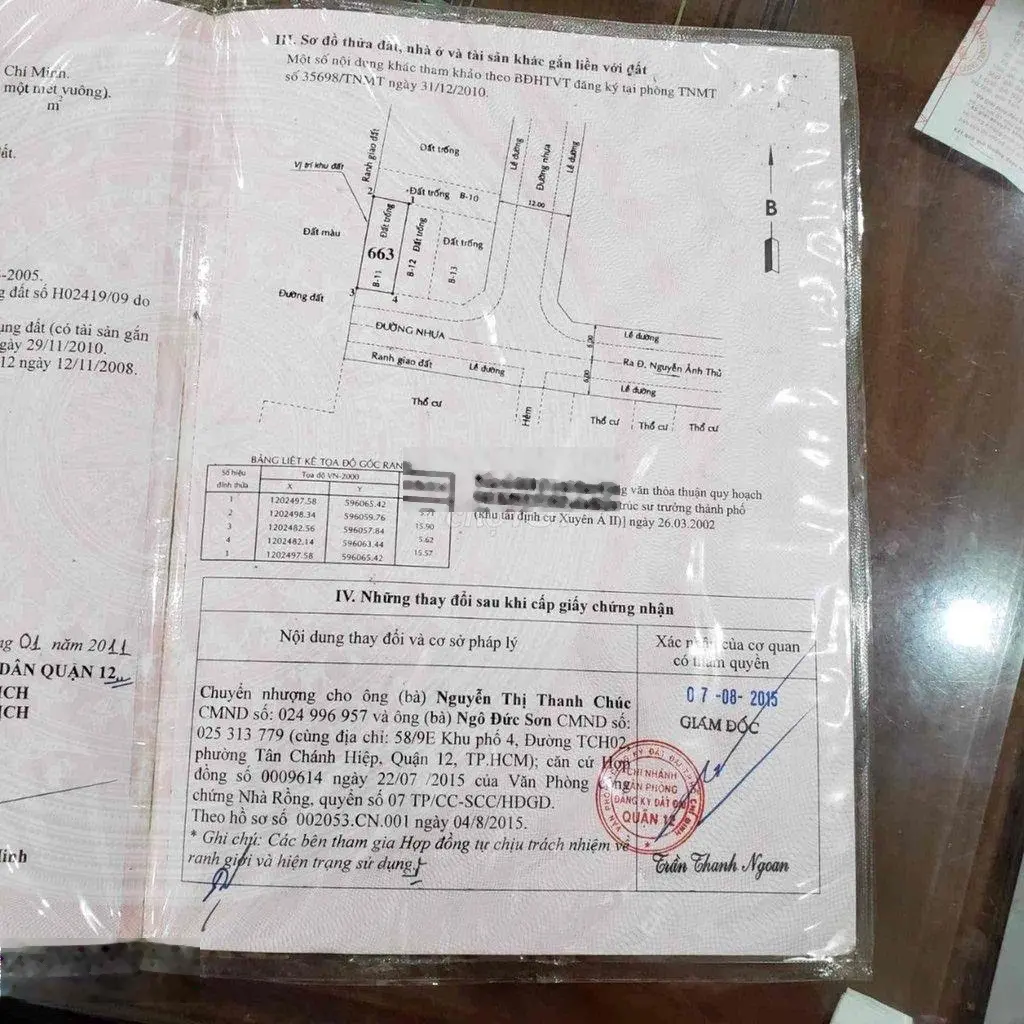 Chí Minh.
một mét vuông).
m²
ất.
-2005.
g đất số H02419/09 do
ụng đất (có tài sản gắn
gày 29/11/2010.
12 ngày 12/11/2008.
ng 01 năm 2011
DÂN QUẬN 12
ỊCH
ỊCH
Minh
III. Sơ đồ thửa đất, nhà ở và tài sản khác gắn liền với đất
Một số nội dung khác tham khảo theo BĐHTVT đăng ký tại phòng TNMT
số 35698/TNMT ngày 31/12/2010.
Ranh giao đất
Đất trống
Lề đường
Đường nhựa
Lề đường
Vị trí khu đất
2
1
Đất trống B-10
12.00
B
Đất màu
Đất trống
663
B-11
B-12 Đất trống
Đất trống
B-13
Đường đất
3
4
ĐƯỜNG NHỰA
Lề đường
6.00
Ranh giao đất
Lề đường
Ra Đ. Nguyễn Ảnh Thủ
6.00
Lề đường
Thổ cư
Hẻm
Thổ cư
Thổ cư
Thổ cư
BẢNG LIỆT KÊ TỌA ĐỘ GÓC RAN
Số hiệu đỉnh thửa
Tọa độ VN-2000
X Y
1 1202497.58 596065.42
2 1202498.34 596059.76
3 1202482.56 596057.84 15.90
4 1202482.14 596063.44 5.62
1 1202497.58 596065.42 15.57
g văn thỏa thuận quy hoạch
trúc sư trưởng thành phố
(khu tái định cư Xuyên Á II)] ngày 26.03.2002
IV. Những thay đổi sau khi cấp giấy chứng nhận
Nội dung thay đổi và cơ sở pháp lý
Xác nhận của cơ quan
có thẩm quyền
Chuyển nhượng cho ông (bà) Nguyễn Thị Thanh Chúc
CMND số: 024 996 957 và ông (bà) Ngô Đức Sơn CMND số:
025 313 779 (cùng địa chỉ: 58/9E Khu phố 4, Đường TCH02,
phường Tân Chánh Hiệp, Quận 12, TP.HCM); căn cứ Hợp
đồng số 0009614 ngày 22/07 /2015 của Văn Phòng Công
chứng Nhà Rồng, quyển số 07 TP/CC-SCC/HDGD.
Theo hồ sơ số 002053.CN.001 ngày 04/8/2015.
* Ghi chú: Các bên tham gia Hợp đồng tự chịu trách nhiệm về
ranh giới và hiện trạng sử dụng.
07 -08- 2015
GIÁM ĐỐC
CHI NHÁNH
VĂN PHÒNG
ĐĂNG KÝ ĐẤT ĐAI
QUẬN 12
Trần Thanh Ngoan